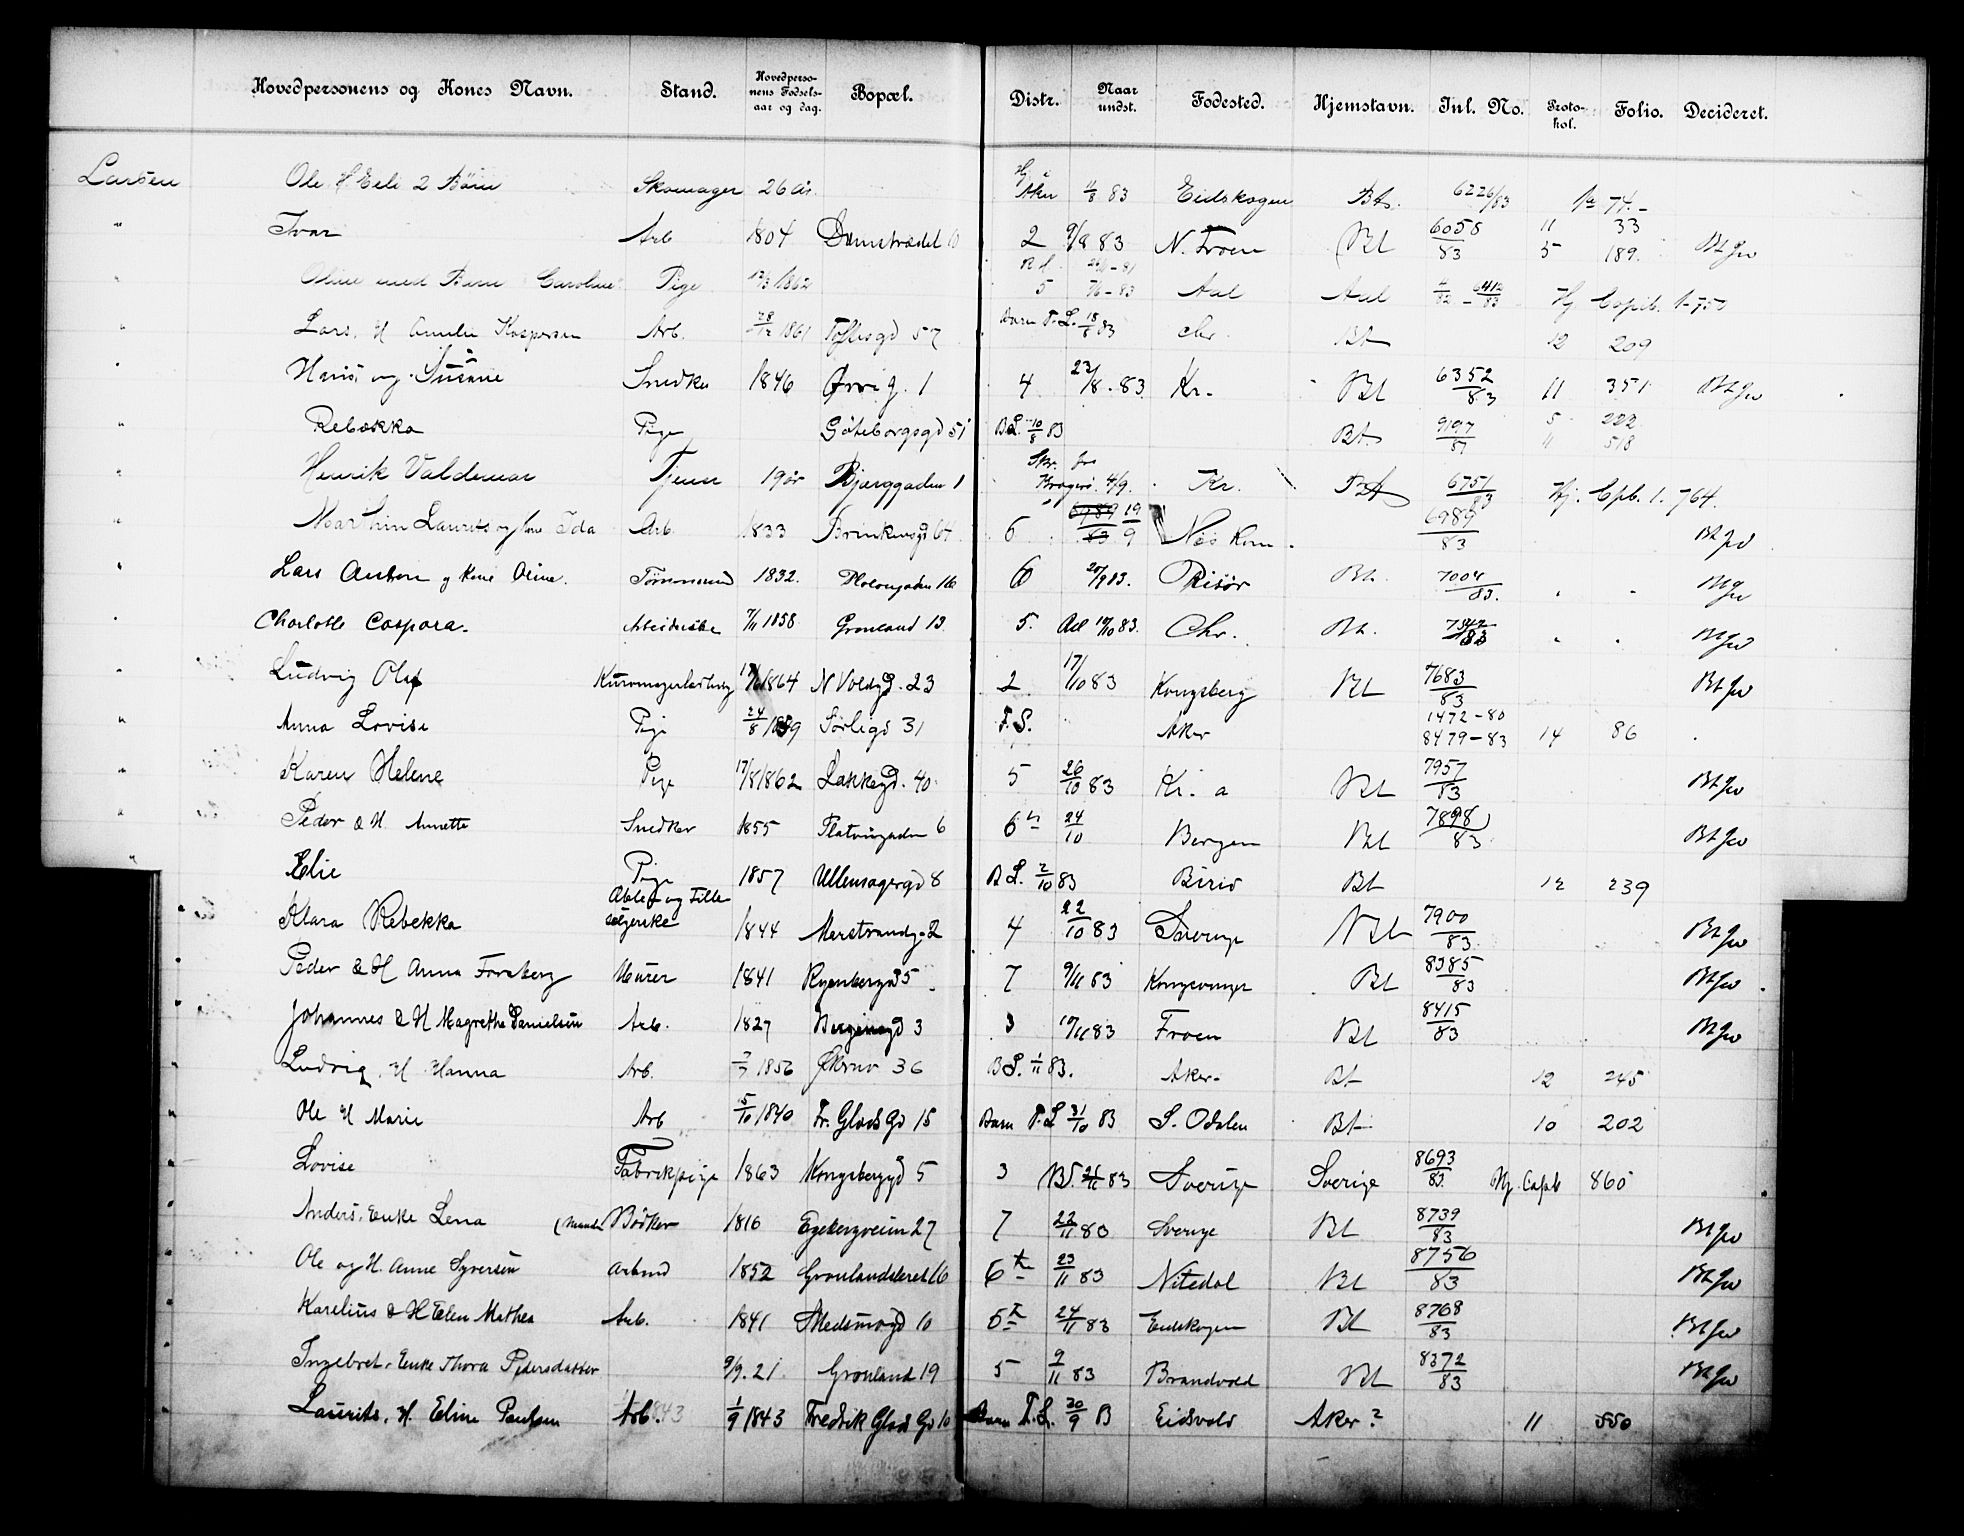 Hovedpersonens og Kones Navn. Stand. Hovedperso-nens Fødsels-aar og dag. Bopæl. Distr. Naar undst. Fødested. Hjemstavn. Inl. No. Proto-kol. Folio. Decideret.
Larsen Ole H Eli 2 Børn Skomager 26 år. Aker 4/8 83 Eidskogen Bt. 6226/83 74.-
" Ivar Arb 1804 Damstrædet 10 2 9/8 83 N. Froen Bt 6058/83 11 33 5 189. Bt Jw
" Oline med Barn Caroline Pige 12/3 1862 5 7/6-83 Aal Aal Hj Copib. 1-750
" Lars, H Amalie Kaspersen Arb. 28/12 1861 Toftesgd 57 Barn T. L. 18/8 83 Chr. Bt 12 209
" Hans og Susane Snedker 1846 4 23/8. 83 Kr. Bt 6352/83 11 351 Bt Jw
" Rebekka Pige Göteborgsgd 51 B.L. 10/8 83 Bt 9197/87 5 222 11 518
" Henrik Valdemar Tjener 19 år Bjerggaden 1 Skr. fra Kragerö. 4/9. Kr. Bt 6751/83 Hj. Cpb. 1. 764.
" Marthin Laurits og Kone Ida Arb. 1833 Brinkensgd 64 6 19/9 Næs Rom. 6989/83 Bt Jw
" Lars Anton og Kone Oline. Tömmermd 1832. 16 6 20/9 83. Risör Bt. 7004/83. " " Bt Jw
" Charlotte Caspara. Arbeiderske 7/11 1858 Grønland 13 5. 10/10 83. Chr. Bt. 7342/83 " " Bt Jw
" Ludvig Olaf 1864 N Voldgd. 23 2 17/10 83 Kongsberg Bt 7683/83 Bt Jw
" Anna Lovise Pige 24/8 1859 Sörligd 31 F. S. Aker 1472-80 8479-83 14 86
" Karen Helene Pige 17/8 1862 Lakkegd. 40 5 26/10 83 Kr. a Bt 7957/83 Bt Jw
" Peder & H. Annette Snedker 1855 Platousgaden 6 6 24/10 Bergen Bt 7898/83 Bt Jw
" Elie Pige 1857 Ullensagergd 8 B L. 2/10 83 Biri Bt 12 239
Klara Rebekka Æble og Fille sælgerske 1844 Marstrandg. 2 4 22/10 83 Sverige Bt 7900/83 Bt Jw
Peder & H Anna Forsberg Murer 1841 Ryenbergd 5 7 9/11 83 Kongsvinger Bt 8385/83 Bt Jw
Johannes & H Magrethe Danielsen Arb. 1827 Bergensgd 3 3 10/11 83 Froen Bt 8415/83 Bt Jw
Ludvig, H. Hanna Arb. 1856 Økern 36 B L. 1/11 83. Aker. Bt 12 245
" Ole H Marie Arb 5/10 1840 Fr. Glads Gd 15 Barn T. L 31/10 83 S. Odalen Bt 10 202
" Lovise Fabrikpige 1863 Kongsbergd 5 3 83 Sverige Sverige 8693/83. Hj. Copb 860
" Anders, Enke Lena Bødker 1816 Egebergveien 27 7 22/11 83 Sverige Bt 8739/83 Bt Jw
" Ole og H. Anne Syversen Arbmd 1852 Grønlandsleret 16 6 23/11 83 Nitedal Bt 8756/83 Bt Jw
" Karelius & H Elen Mathea Arb. 1841 Smedsmogd 10 6 24/11 83 Eidskogen Bt 8768/83 Bt Jw
" Ingebret, Enke Thora Pedersdatter 9/9. 21. Grønland 19 5 9/11 83 Brandvold Bt 8372/83 Bt Jw
" Laurits, H. Eline Paulsen Arb. 1/9 1843 Fredrik Glads Gd 10 Barn T. L. 20/9 83 Eidsvold Aker? 11 550